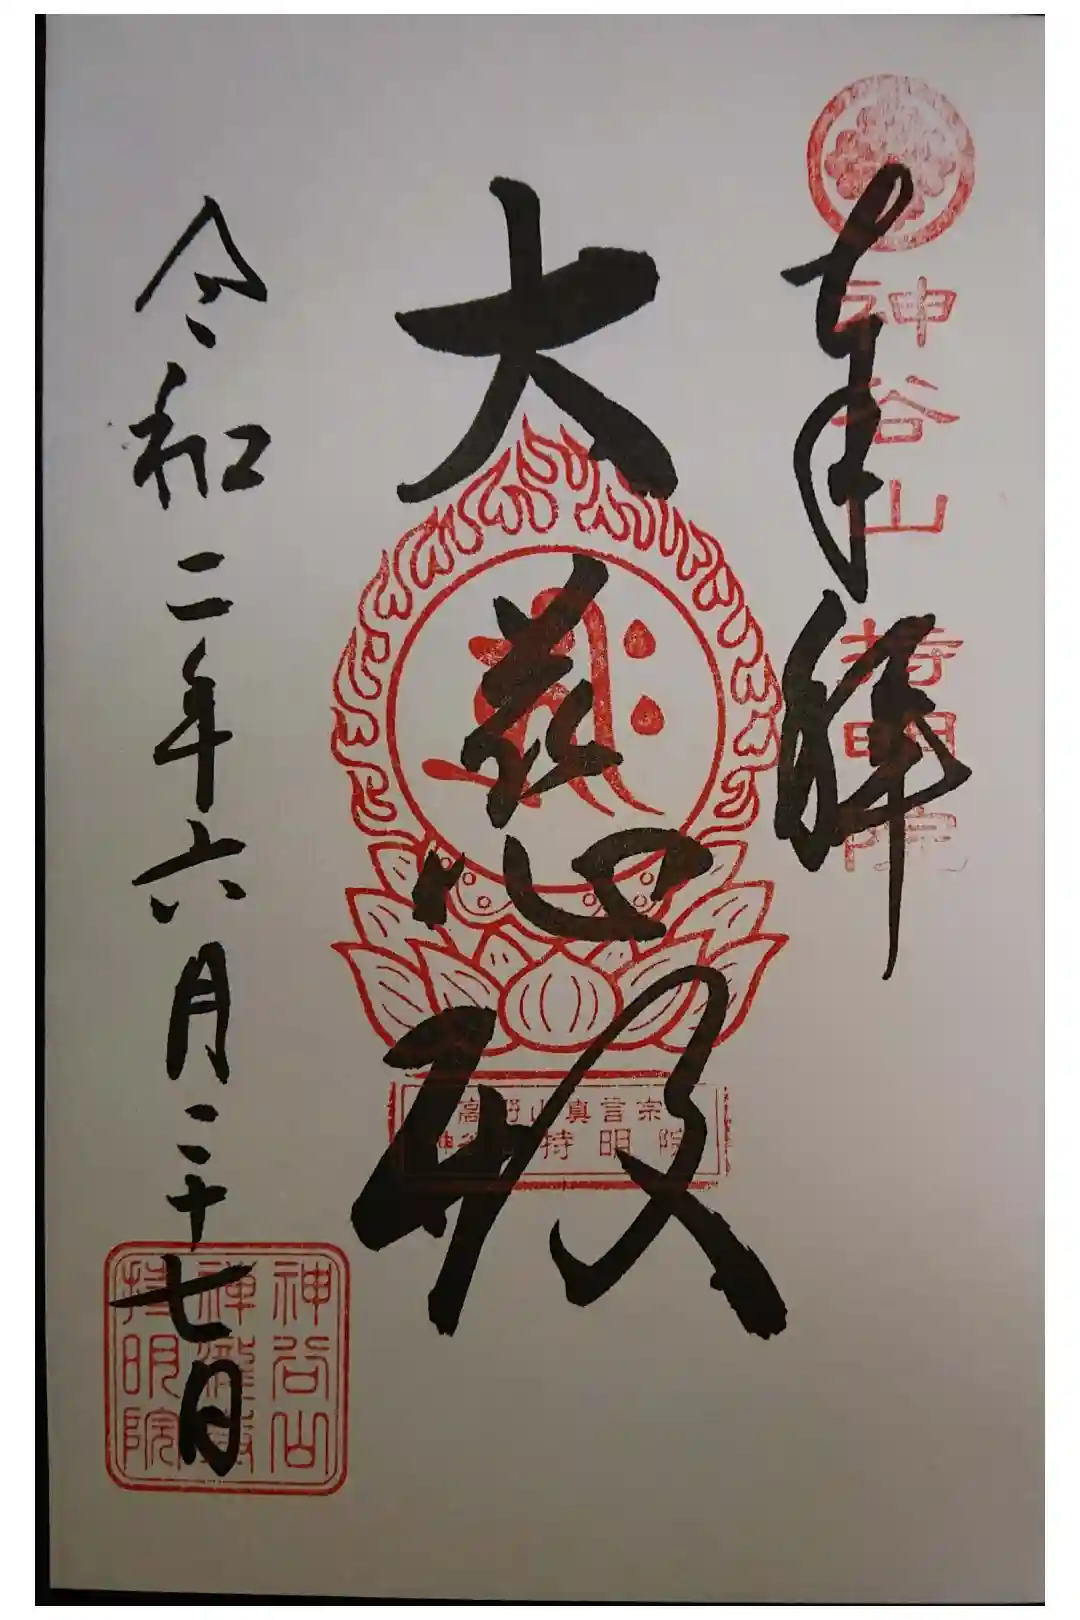 奉拝
神谷山 持明院
大慈心殿
高野山真言宗
神谷山持明院
令和二年六月二十七日
神谷山
持明院